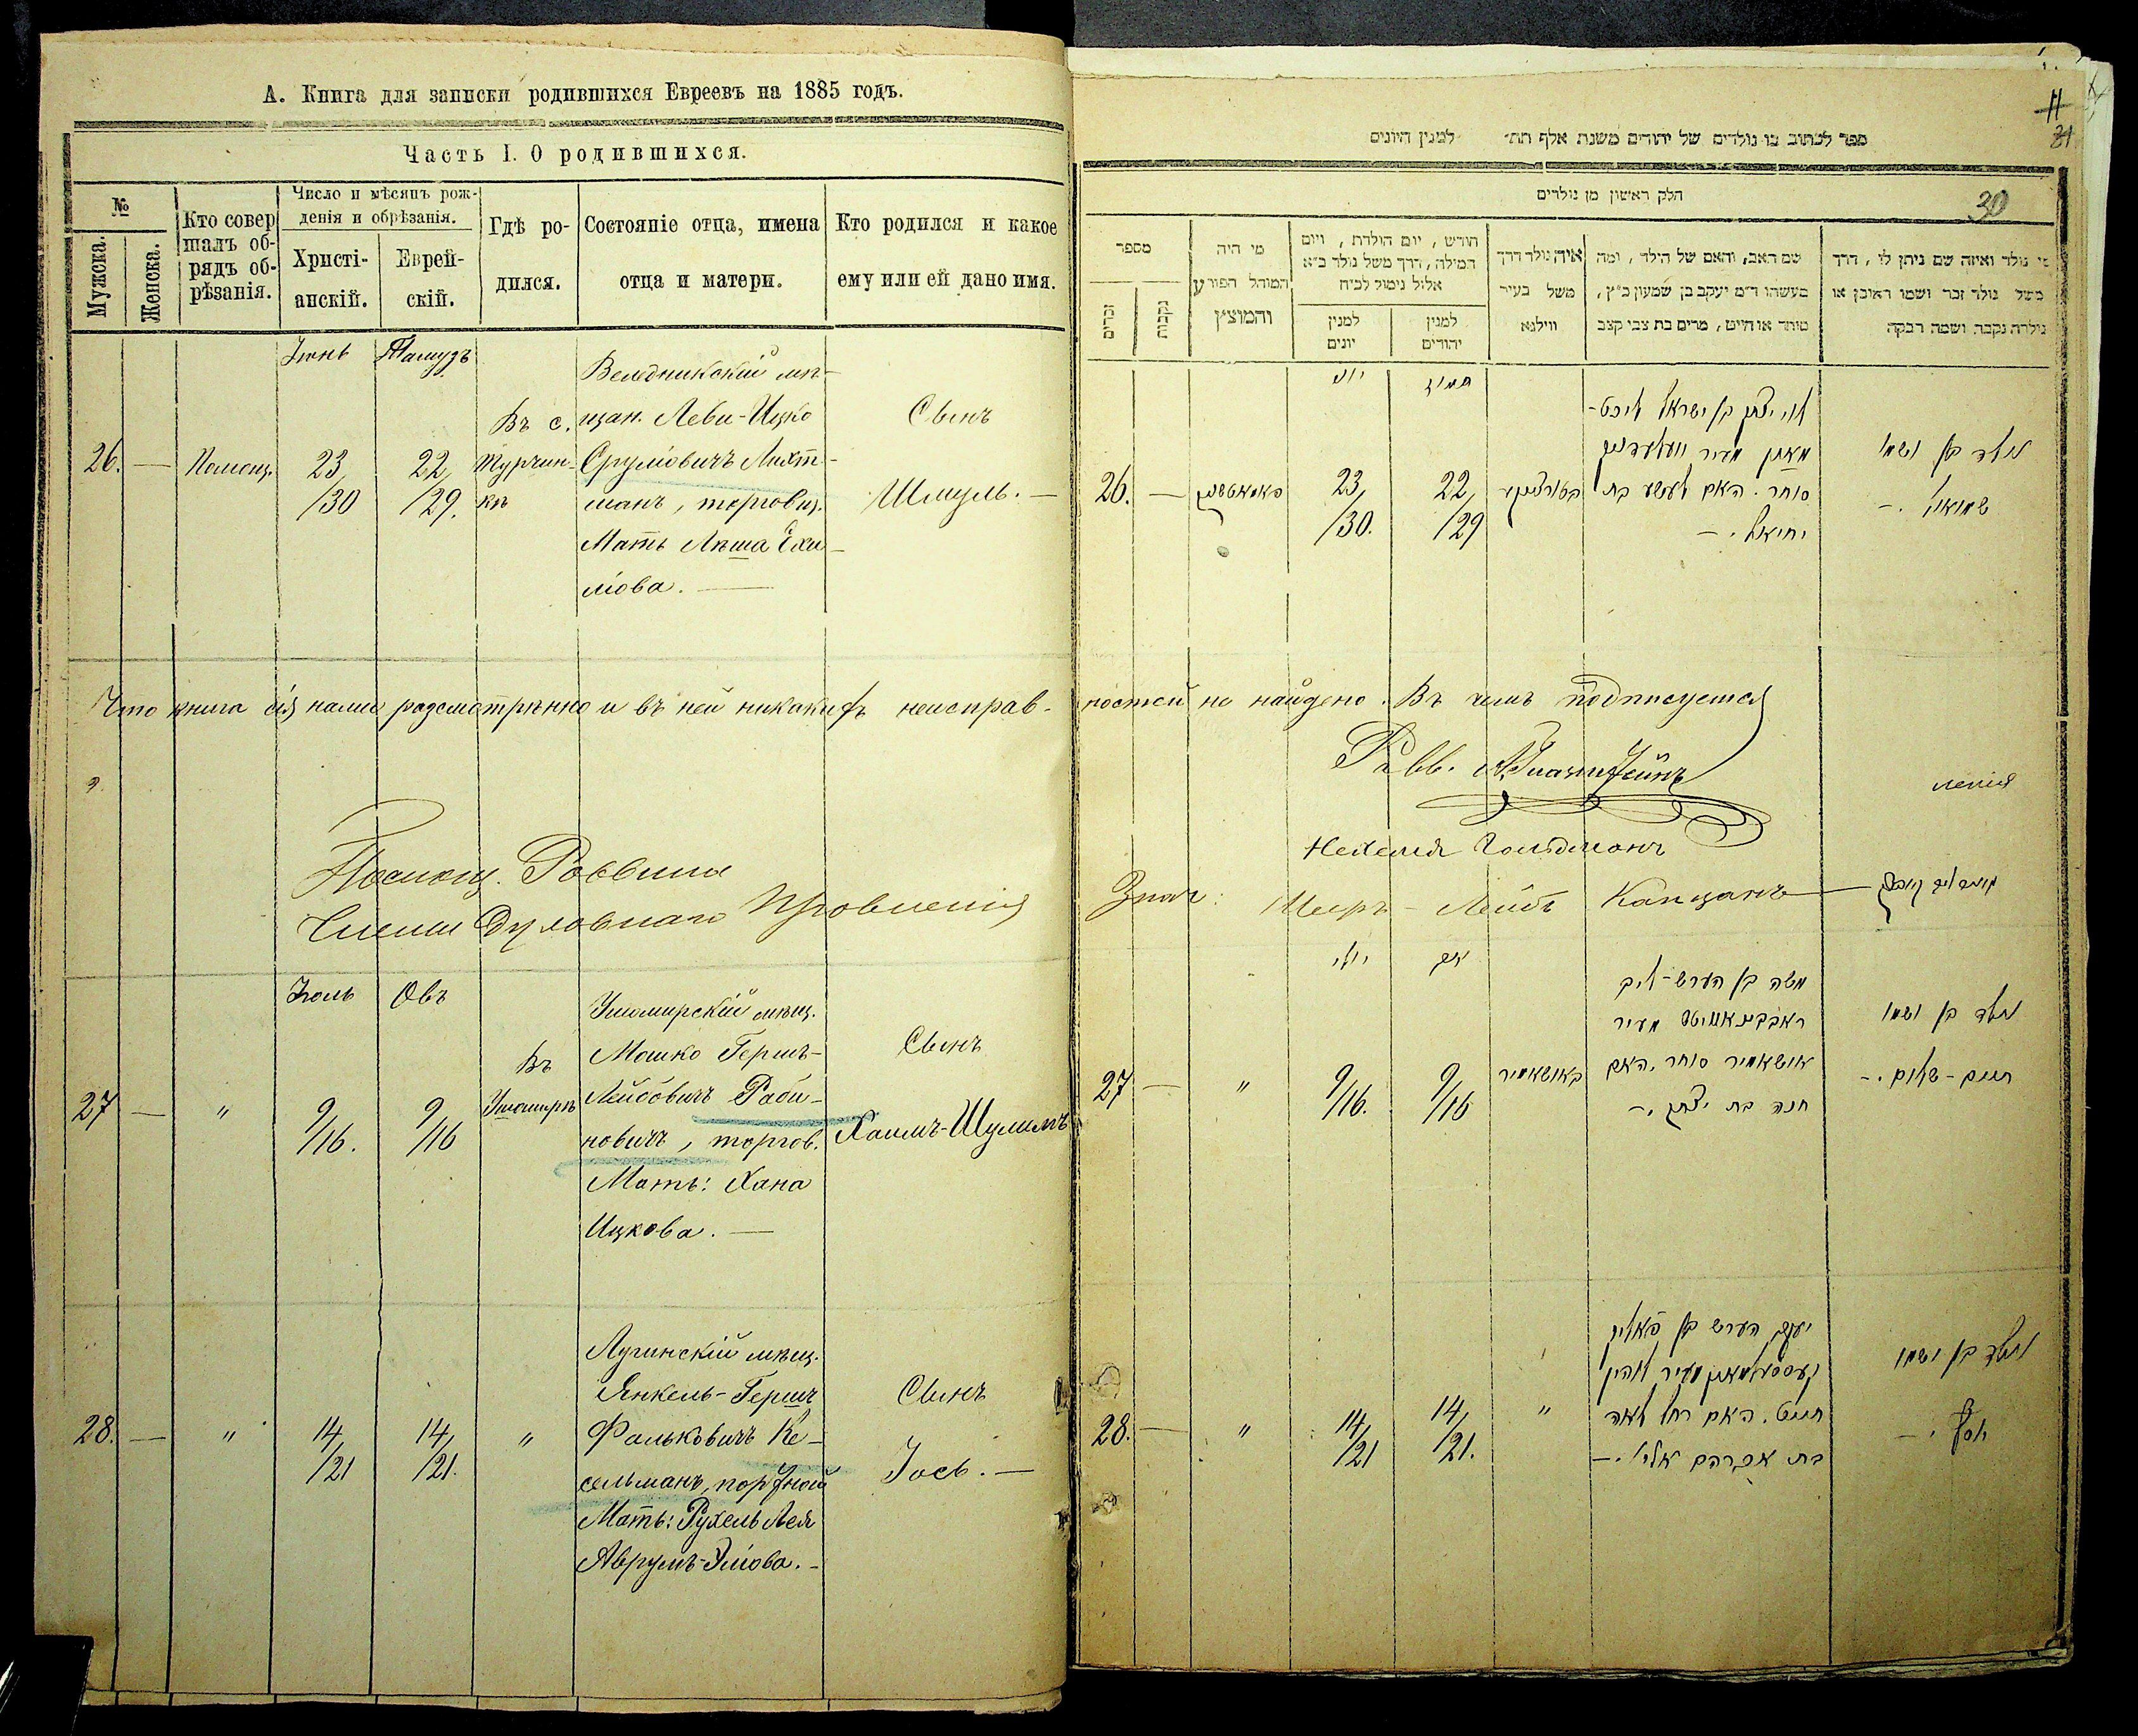 А. Книга для записки родившихся Евреевъ на 1885 годъ.
Часть I. О родившихся.
№
Мужска.
Женска.
Кто совер
шалъ об-
рядъ об-
рѣзанія.
Число и мѣсяцъ рож-
денія и обрѣзанія.
Христі-
анскій.
Еврей-
скій.
Гдѣ ро-
дился.
Состояніе отца, имена
отца и матери.
Кто родился и какое
ему или ей дано имя.
Іюнь
Тамузъ
26. —
Помощ.
23/30
22/29.
Въ с.
Турчин-
кѣ
Веледникскій мѣ-
щан. Леви-Ицко
Сруліовичъ Лихт-
манъ, торговц.
Мать Лѣша Ехи-
ліова. —
Сынъ
Шмуль. —
Что книга сія нами разсмотрѣнно и въ ней никакихъ неисправ-
Помощ. Раввина
Члены Духовнаго Правленія
Іюль
Овъ
27 —
"
9/16.
9/16
Въ
Ушомирѣ
Ушомирскій мѣщ.
Мошко Гершъ-
Лейбовичъ Раби-
новичъ, торгов.
Мать: Хана
Ицкова. —
Сынъ
Хаимъ-Шулимъ
28. —
"
14/21
14/21.
"
Лугинскій мѣщ.
Янкель-Герш
Фальковичъ Ке-
сельманъ, портной
Мать: Рухель Лея
Аврумъ-Эліова. -
Сынъ
Іось. —
11
31
ספר לכתוב בו נולדים של יהודים משנת אלף תת״ למנין היונים
חלק ראשון מן נולדים
30
מספר
זכרים
נקבות
מי היה
המוהל הפורע
והמוצץ
חודש, יום הולדת, ויום
המילה, דרך משל נולד כ״א
אלול נימול לכ״ח
למנין
יונים
למנין
יהודים
איה נולד דרך
משל בעיר
ווילנא
שם האב, והאם של הילד, ומה
מעשהו ד״מ יעקב בן שמעון כ״ץ,
סוחר או חייט, מרים בת צבי קצב
מי נולד ואיזה שם ניתן לו, דרך
משל נולד זכר ושמו ראובן או
נולדה נקבה ושמה רבקה
יוני
תמוז
26. —
23/30.
22/29
לוי יצחק בן ישראל ליכט-
מאן מעיר וועלעדניק
סוחר. האם לעשע בת
יחיאל. —
נולד בן ושמו
שמואל. —
ностей не найдено. Въ чемъ подписуемся
Равв.
ленія
Нехемія Гольдманъ
Знач: Меиръ - Лейбъ Канцанъ —
יולי
אב
27 —
"
9/16.
9/16
באושאמיר
משה בן הערש-ליב
ראבינאוויטש מעיר
אושאמיר סוחר. האם
חנה בת יצחק. —
נולד בן ושמו
חיים-שלום. —
28. —
"
14/21
14/21.
"
יעקב הערש בן פאליק
קעסעלמאן מעיר לוהין
חייט. האם רחל לאה
בת אברהם אליו. —
נולד בן ושמו
יוסף. —